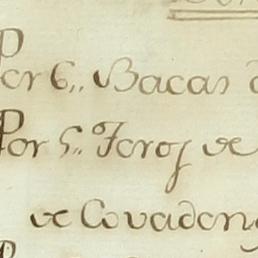 Por 6,, Bacas d
Por 5,, Toros de
de Covadong